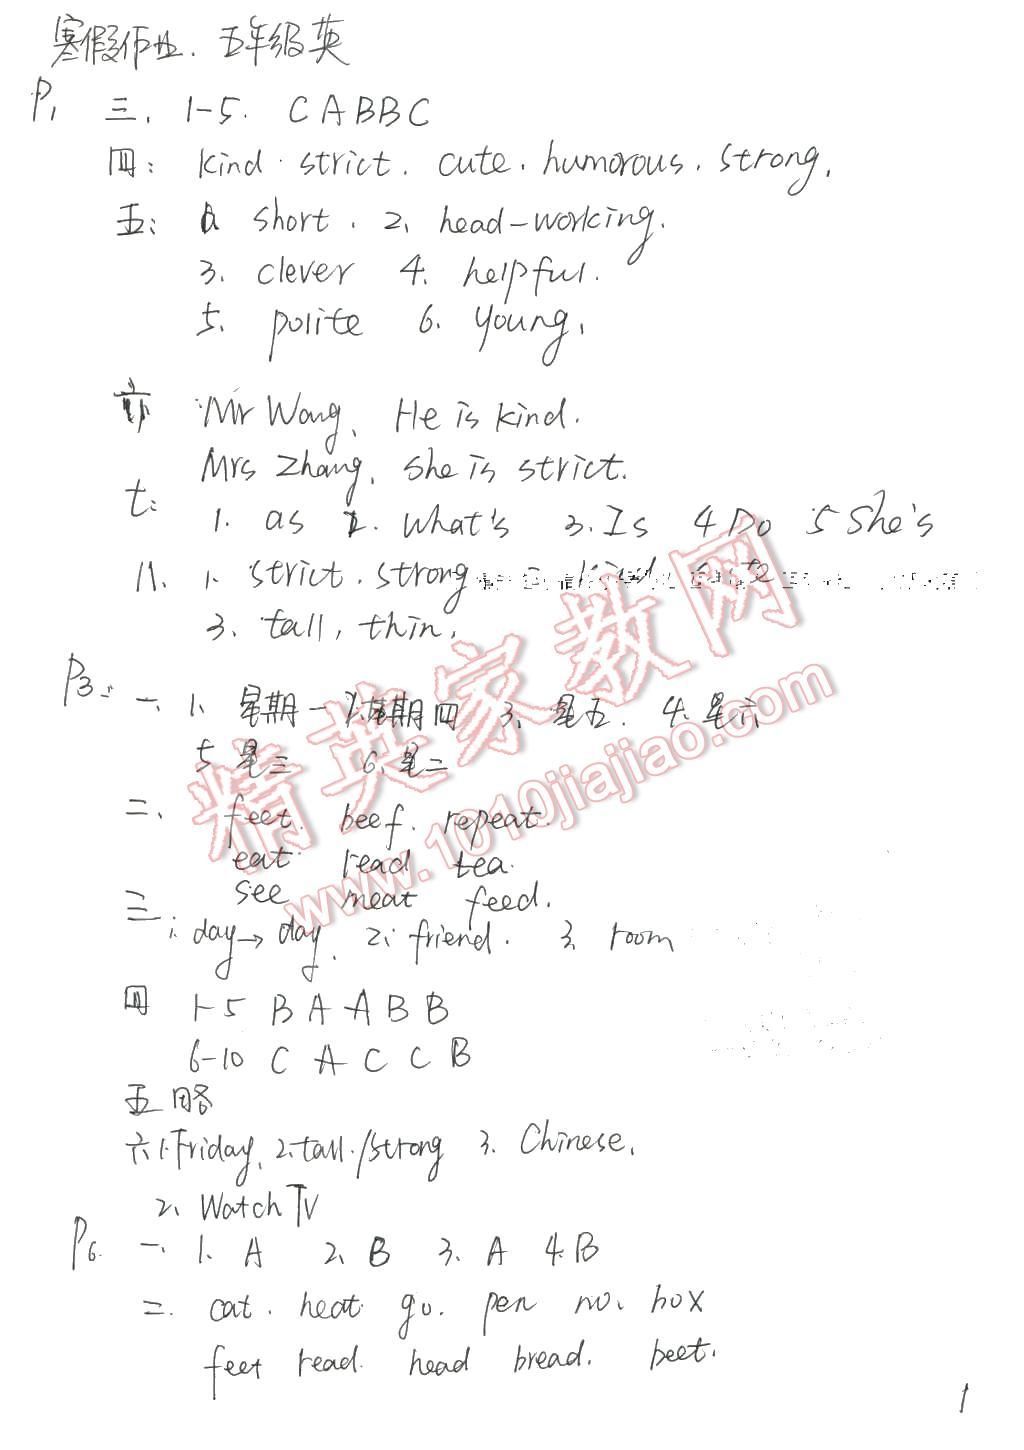 寒假作业. 五年级英
P1 三. 1-5. C A B B C
四: kind. strict. cute. humorous. strong.
五: short. 2. head-working.
3. clever 4. helpful.
5. polite 6. young.
六 Mr Wang. He is kind.
Mrs Zhang. she is strict.
七: 1. as 2. what's 3. Is 4 Do 5 She's
八. 1. strict. strong
3. tall, thin.
P3 一、1、星期一 2、星期四 3、星五. 4. 星六
5 星三 6、星二
二、 feet. beef. repeat.
eat read tea.
see meat feed.
三 1. day→day. 2. friend. 3. room
四 1-5 B A A B B
6-10 C A C C B
五 略
六 1. Friday. 2. tall./strong 3. Chinese.
2、Watch TV
P6. 一、1. A 2、B 3. A 4. B
二. cat. heat go. pen no. box
feet read. head bread. beet.
1
精英家教网
www.1010jiajiao.com